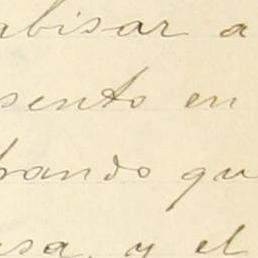 abisar a
sento en
rando qu
sa, y el